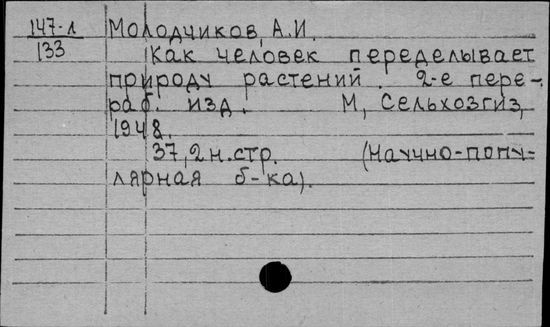 147-л Молодчиков, А.И.
133 Как человек переделывает
природу растений. 2-е пере-
раб. изд. М, Сельхозгиз,
1948.
37,2 н.стр. (Научно-попу-
лярная б-ка).